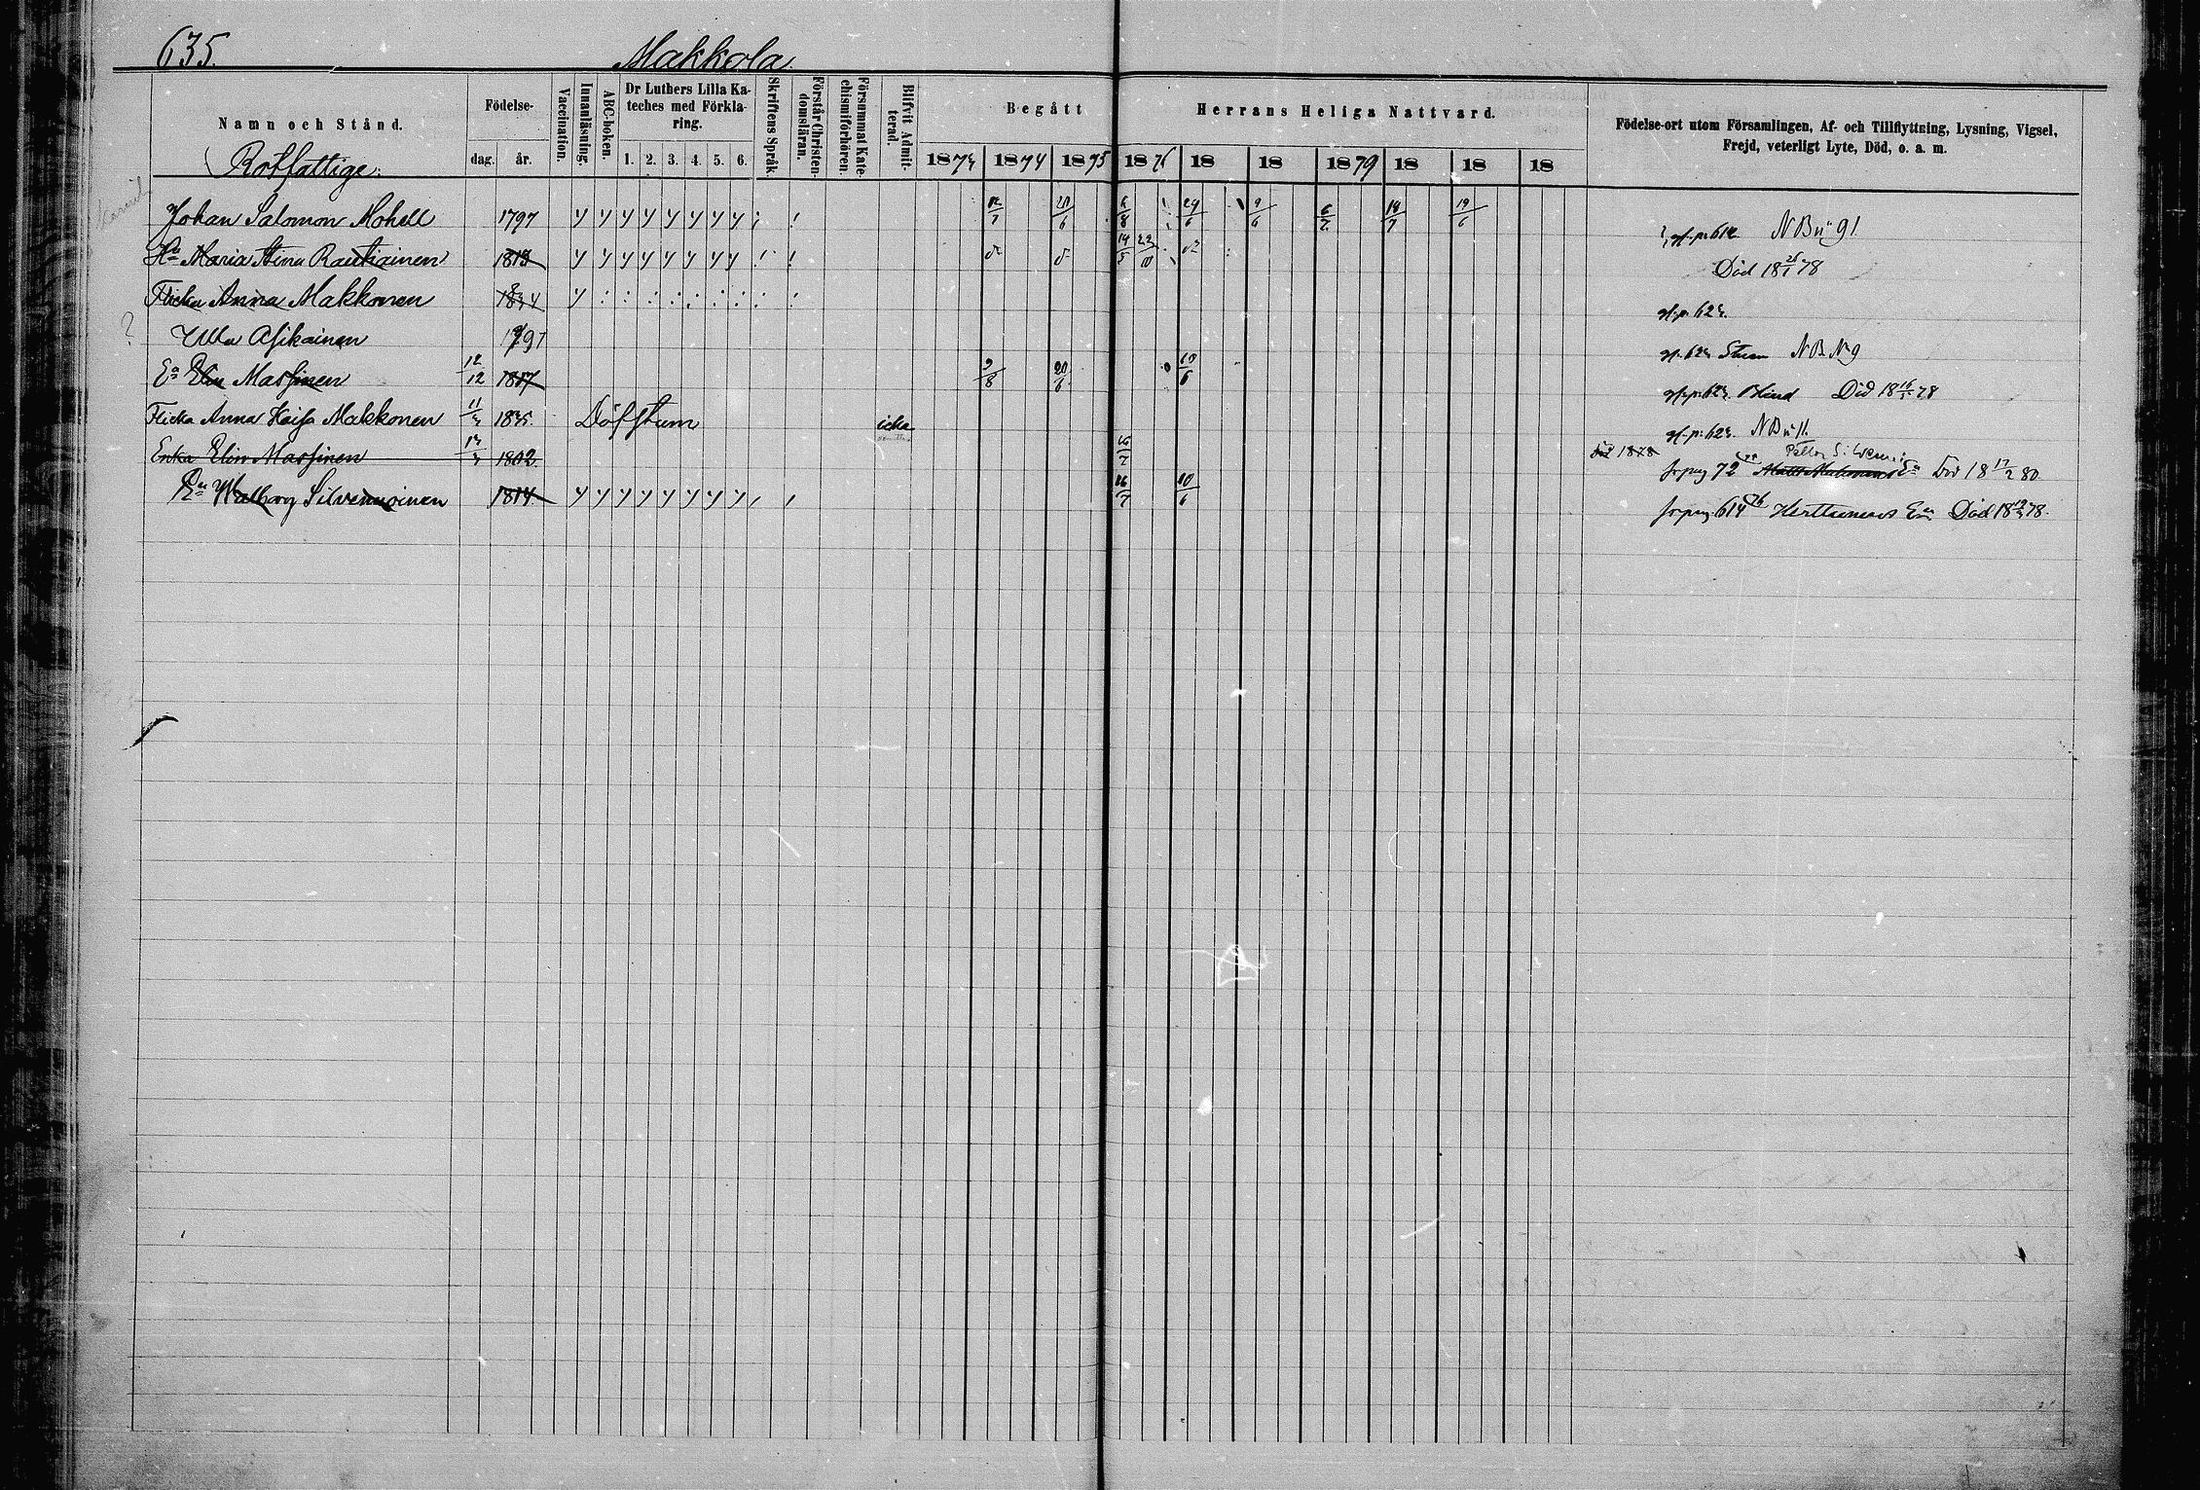 635. Makkola
Namn och Stånd. Födelse- dag. år. Vaccination. Innanläsning. ABC-boken. Dr Luthers Lilla Kateches med Förklaring. 1. 2. 3. 4. 5. 6. Skriftens Språk Förstår Christendomsläran. Försummat Kattechismiförhören. Blifvit Admitterad. Begått Herrans Heliga Nattvard. 1873 1874 1875 1876 18 18 1879 18 18 18 Födelse-ort utom Församlingen, Af- och Tillflyttning, Lysning, Vigsel, Frejd, veterligt Lyte, Död, o. a. m.
Rotfattige
Johan Salomon Mohell 1797 12/7 20/6 6/8 24/6 9/6 6/7 14/7 19/6 p. 614 NB n 91
Hu Maria Stina Rautiainen 1813 14/5 22/10 Död 18 25/1 78
Flicka Anna Makkonen 1834 p. 623.
Ulla Asikainen 1791 623 Stum NB N 9
Ea Elin Massinen 12/12 1817 9/8 20/6 10/6 p. 623. Blind Död 18 16/5 78
Flicka Anna Kaisa Makkonen 11/3 1835. Döfstum icke p. 623. NB n 11.
Enka Elin Massinen 13/3 1802 16/7 död 1878 fr pag 72 Ea Död 18 17/2 80
Ea Walborg Silvennoinen 1814. 16/7 10/6 fr pag. 614 Herttuainens Ea Död 18 19/3 78.